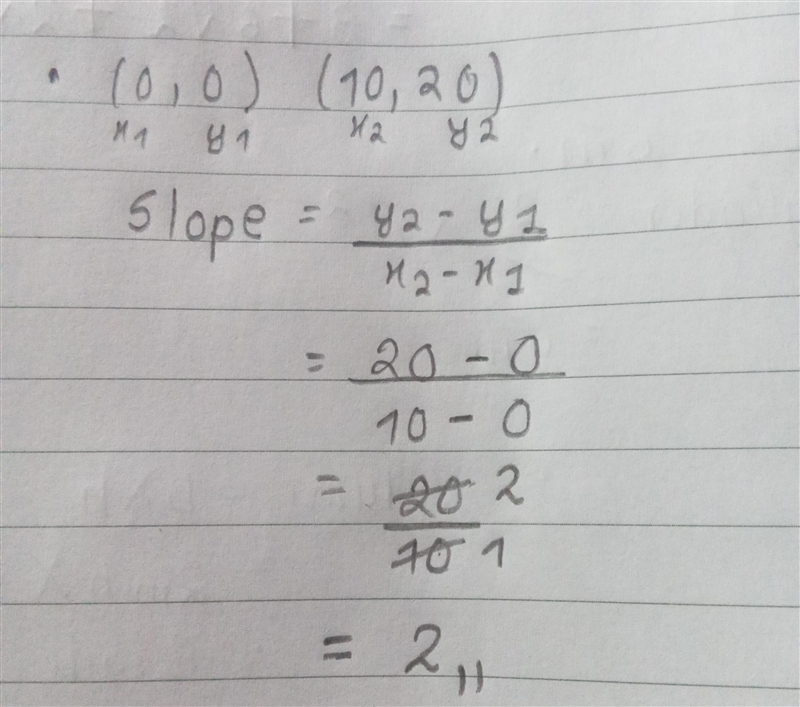 • (0, 0) (10, 20)
x1 y1 x2 y2
Slope = y2 - y1
x2 - x1
= 20 - 0
10 - 0
= 20 2
10 1
= 2 ,,